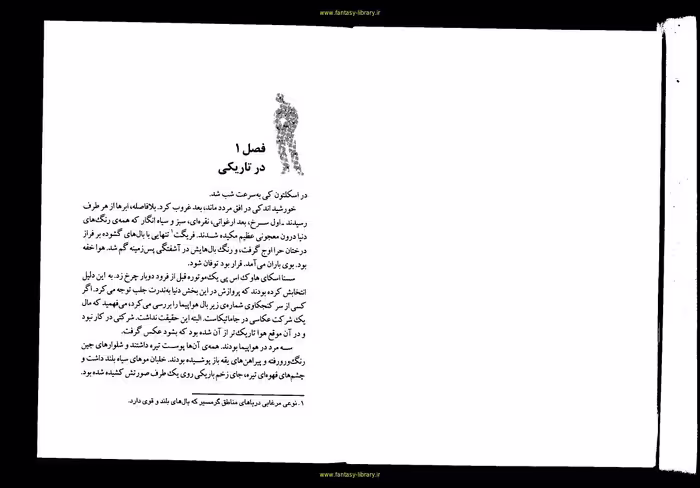 www.fantasy-library.ir
فصل ۱
در تاریکی
در اسکلتون کی به‌سرعت شب شد.
خورشید اندکی در افق مردد ماند، بعد غروب کرد. بلافاصله، ابرها از هر طرف
رسیدند ـ اول سرخ، بعد ارغوانی، نقره‌ای، سبز و سیاه انگار که همه‌ی رنگ‌های
دنیا درون معجونی عظیم مکیده شدند. فریگت۱ تنهایی با بال‌های گشوده بر فراز
درختان حرا اوج گرفت، و رنگ بال‌هایش در آشفتگی پس‌زمینه گم شد. هوا خفه
بود. بوی باران می‌آمد. قرار بود توفان شود.
سسنا اسکای هاوک اس پی یک‌موتوره قبل از فرود دوبار چرخ زد. به این دلیل
انتخابش کرده بودند که پروازش در این بخش دنیا به‌ندرت جلب توجه می‌کرد. اگر
کسی از سر کنجکاوی شماره‌ی زیر بال هواپیما را بررسی می‌کرد، می‌فهمید که مال
یک شرکت عکاسی در جامائیکاست. البته این حقیقت نداشت. شرکتی در کار نبود
و در آن موقع هوا تاریک‌تر از آن شده بود که بشود عکس گرفت.
سه مرد در هواپیما بودند. همه‌ی آن‌ها پوست تیره داشتند و شلوارهای جین
رنگ‌ورورفته و پیراهن‌های یقه باز پوشیده بودند. خلبان موهای سیاه بلند داشت و
چشم‌های قهوه‌ای تیره، جای زخم باریکی روی یک طرف صورتش کشیده شده بود.
۱. نوعی مرغابی دریاهای مناطق گرمسیر که بال‌های بلند و قوی دارد.
www.fantasy-library.ir